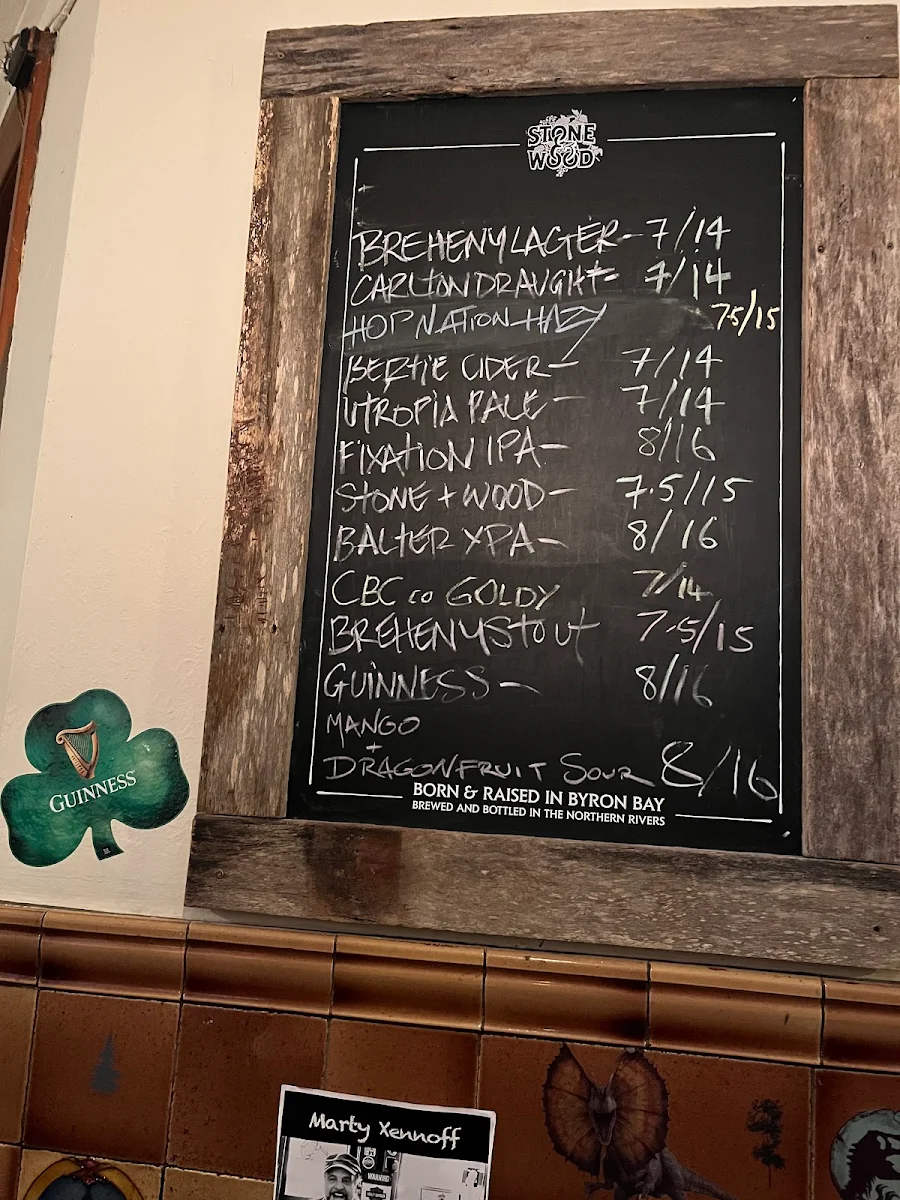 STONE
& WOOD
BREHENY LAGER - 7/14
CARLTON DRAUGHT - 7/14
HOP NATION HAZY 7.5/15
BERTIE CIDER - 7/14
UTROPIA PALE - 7/14
FIXATION IPA - 8/16
STONE + WOOD - 7.5/15
BALTER XPA - 8/16
CBC co GOLDY 7/14
BREHENY STOUT 7.5/15
GUINNESS - 8/16
MANGO
+
DRAGONFRUIT SOUR 8/16
BORN & RAISED IN BYRON BAY
BREWED AND BOTTLED IN THE NORTHERN RIVERS
GUINNESS
Marty Xennoff